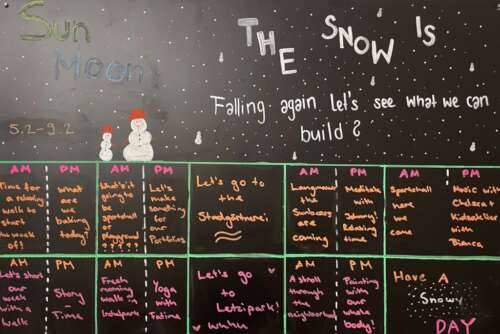 Sun
Moon
THE SNOW IS
Falling again let's see what we can
build?
5.2-9.2
AM PM AM PM AM PM AM PM
Time for
a relaxing
walk to
start
week
of!
What
are
we
eating
today?
going
to
sportshall
or
playground
?????
Let's
make
for
our
Portfolios
Let's go to
the
Stadsgärtneri
are
coming
Meditate
with
Reading
time
Sportshall
here
we
come
Music with
Chelsea &
with
Bianca
AM PM AM PM AM PM
Let's start
our
week with a
walk
Story
Time
Fresh
morning
walk
Yoga
with
Fatima
Let's go
to
Letsipark!
wuhu
A stroll
through
the
neighborhood
Painting
with our
whole
body
Have A
Snowy
DAY